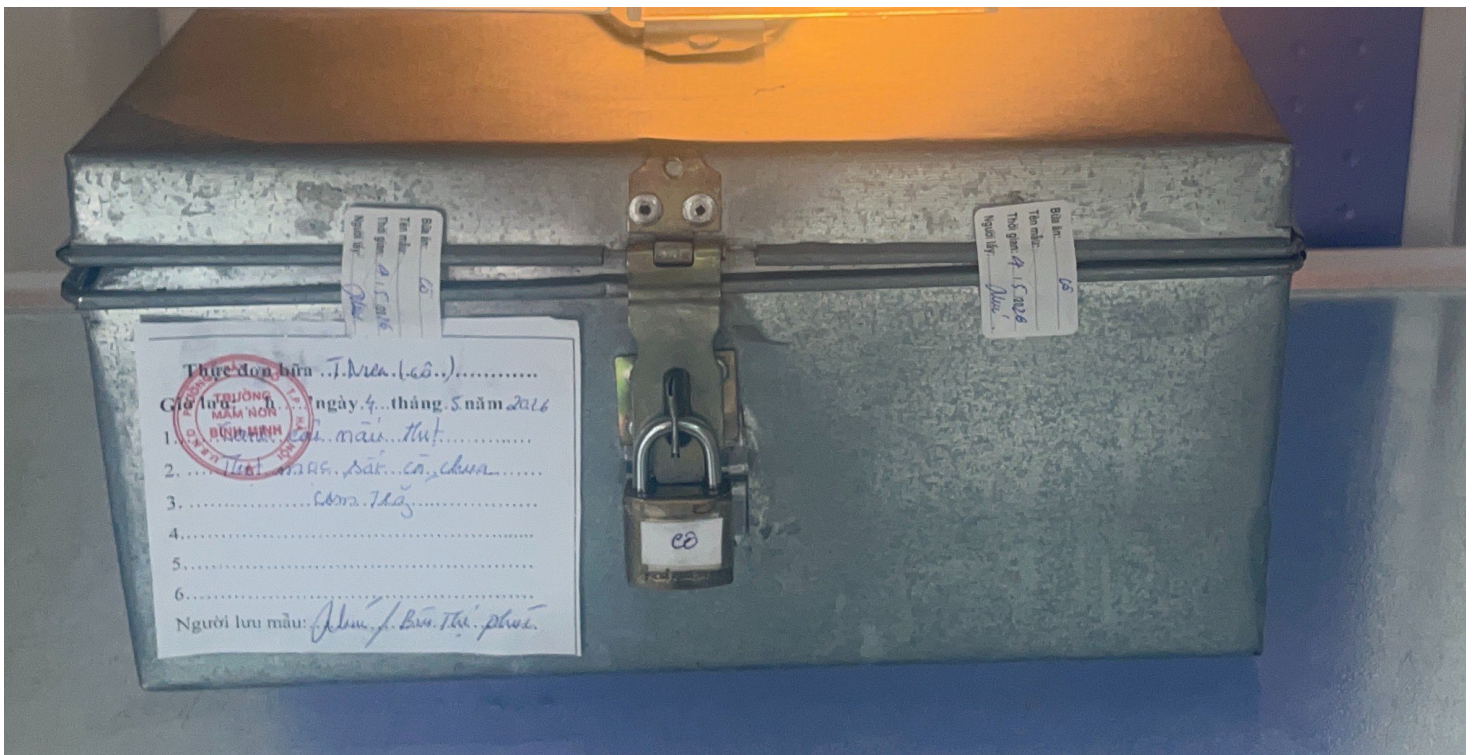 Bữa ăn: Cô
Tên mẫu:
Thời gian: 4.5.2026
Người lấy:
Bữa ăn: Cô
Tên mẫu:
Thời gian: 4.5.2026
Người lấy:
Thực đơn bữa ..T.Trưa (cô)............
Giờ lưu: h ngày.4...tháng.5.năm 2026
1. Canh cải nấu thịt
2. Thịt sốt cà chua
3. Cơm
4.
5.
6.
Người lưu mẫu: Bùi Thị
U.B.N.D PHƯỜNG T.P. HÀ NỘI
TRƯỜNG
MẦM NON
BÌNH MINH
CÔ